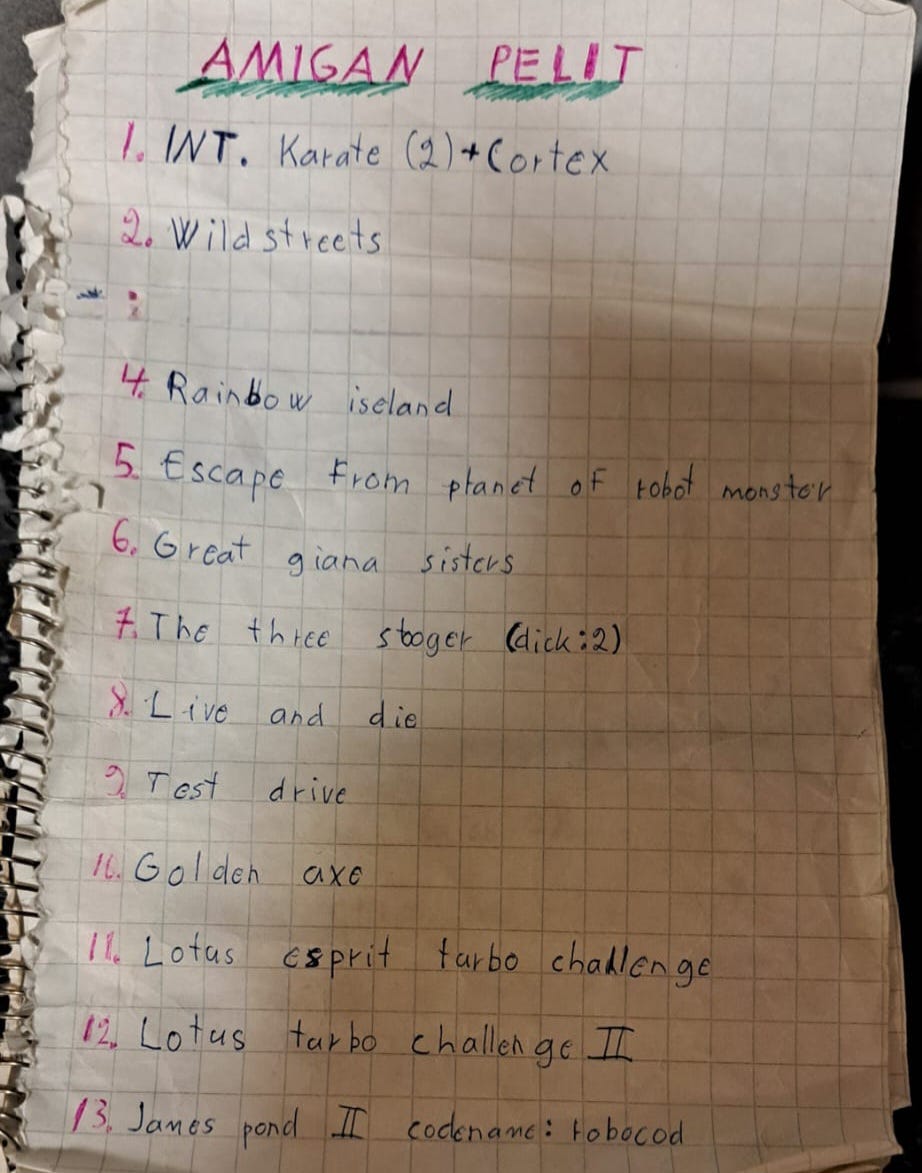 AMIGAN PELIT
1. INT. Karate (2)+Cortex
2. Wild streets
4. Rainbow iseland
5. Escape From planet of robot monster
6. Great giana sisters
7. The three stoger (dick:2)
8. Live and die
9. Test drive
10. Golden axe
11. Lotus esprit turbo challenge
12. Lotus turbo challenge II
13. James pond II codename: robocod